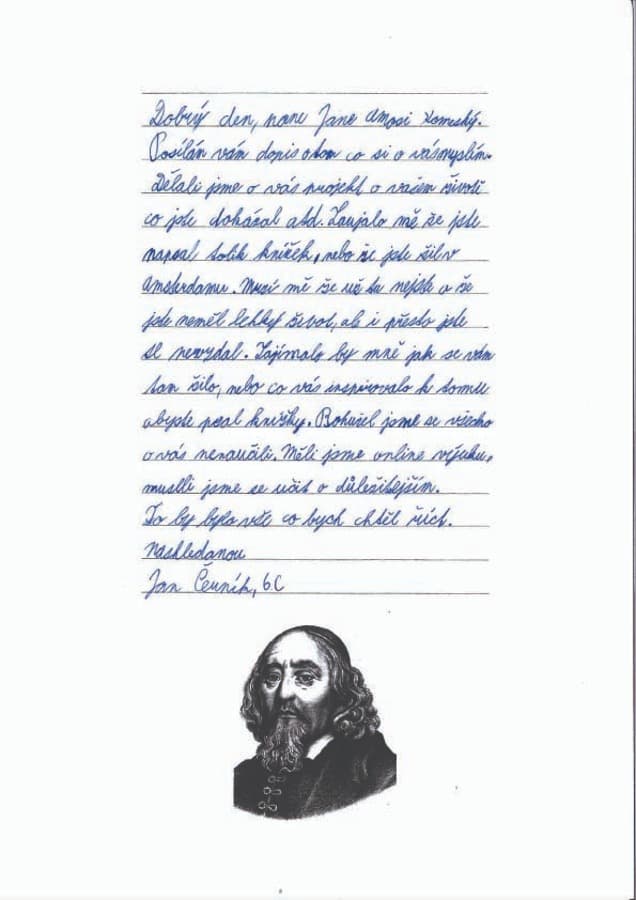 Dobrý den, pane Jane Amosi Komeský.
Posílán vám dopis o tom co si o vás myslím.
Dělali jsme o vás projekt o vašem životě
co jste dokázal atd. Zaujalo mě že jste
napsal tolik knížek, nebo že jste žil v
Amsterdamu. Mrzí mě že už tu nejste a že
jste neměl lehký život, ale i přesto jste
se nevzdal. Zajímalo by mně jak se vám
tam žilo, nebo co vás inspirovalo k tomu
abyste psal knížky. Bohužel jsme se všecho
o vás nenaučili. Měli jsme online výuku,
muslli jsme se učit o důležitejším.
To by bylo vše co bych chtěl říct.
Nashledanou
Jan 6.C